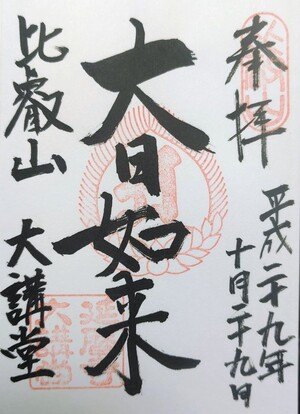 奉拝
平成二十九年
十月二十九日
大日如来
比叡山
大講堂